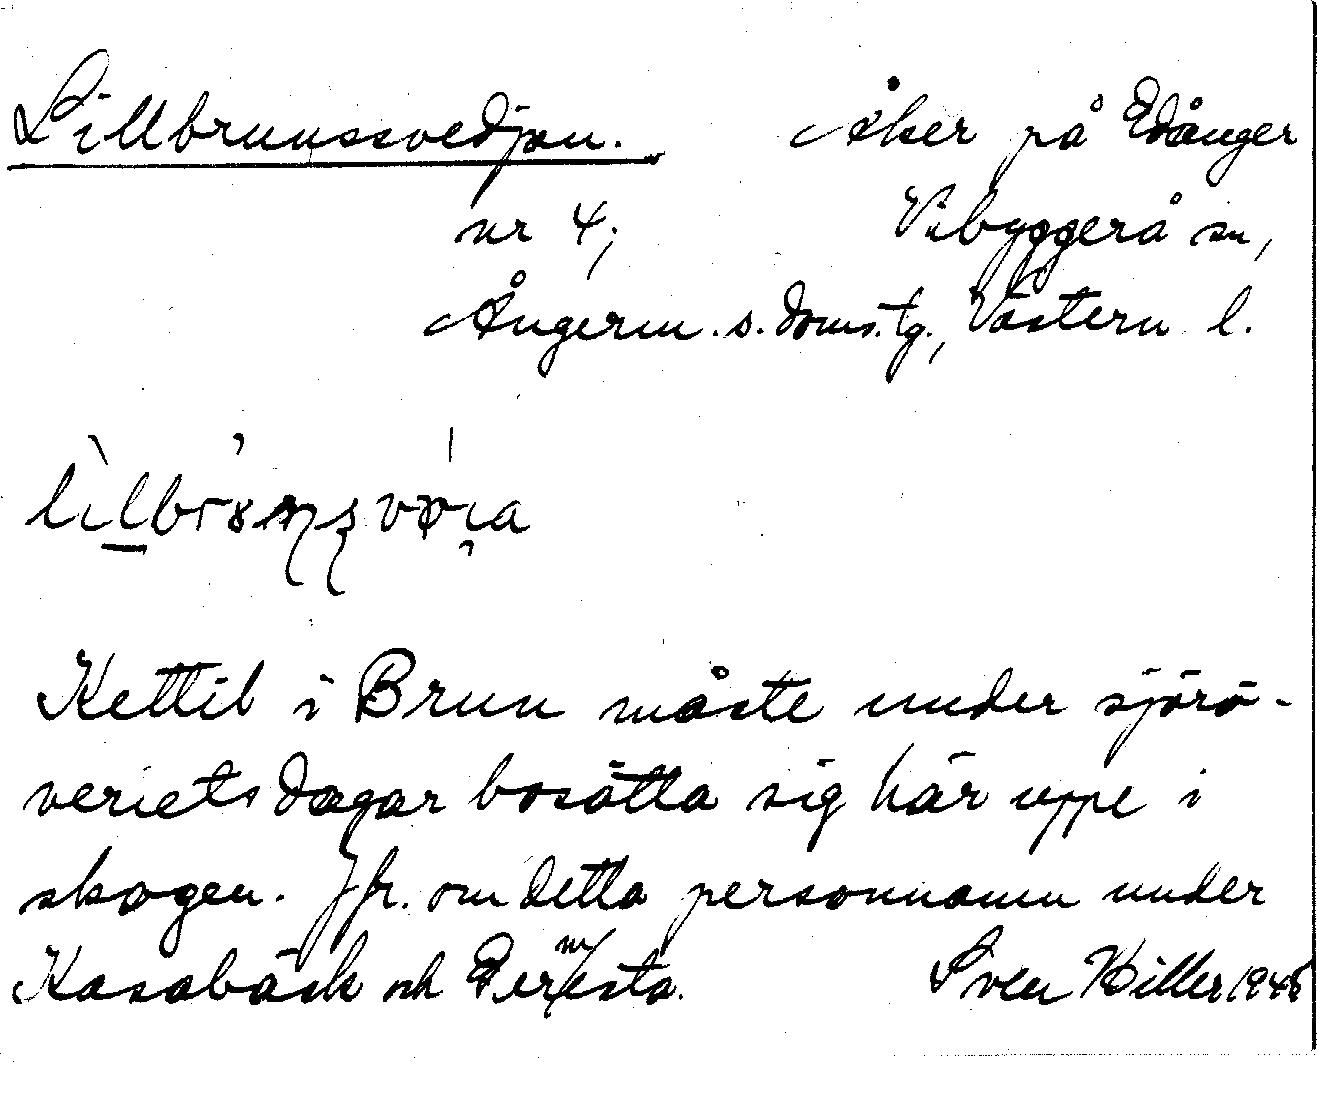 Lillbrunssvedjan. Åker på Edånger
nr 4; Vibyggerå sn,
Ångerm. s. doms. tg., Västern l.
Kettil i Brun måste under sjörö-
veriets dagar bosätta sig här uppe i
skogen. Jfr. om detta personnamn under
Kasabäck och Permsta.
Sven Hiller 194